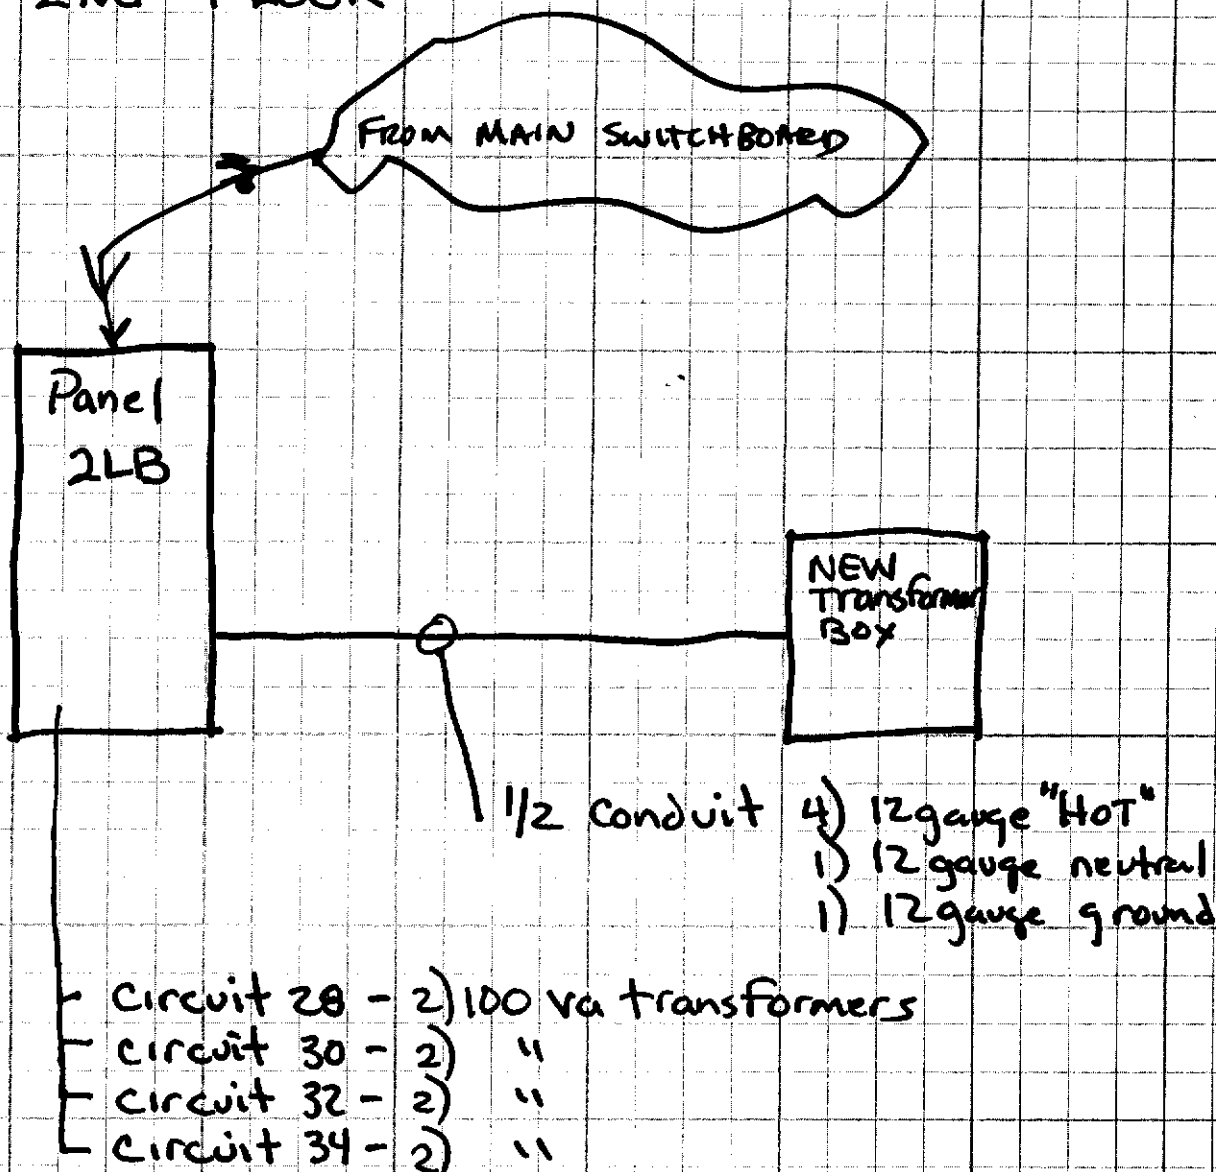 2ND FLOOR
FROM MAIN SWITCHBOARD
Panel
2LB
NEW
Transformer
Box
1/2 Conduit 4) 12 gauge "HOT"
1) 12 gauge neutral
1) 12 gauge ground
Circuit 28 - 2) 100 va transformers
Circuit 30 - 2) "
Circuit 32 - 2) "
Circuit 34 - 2) "